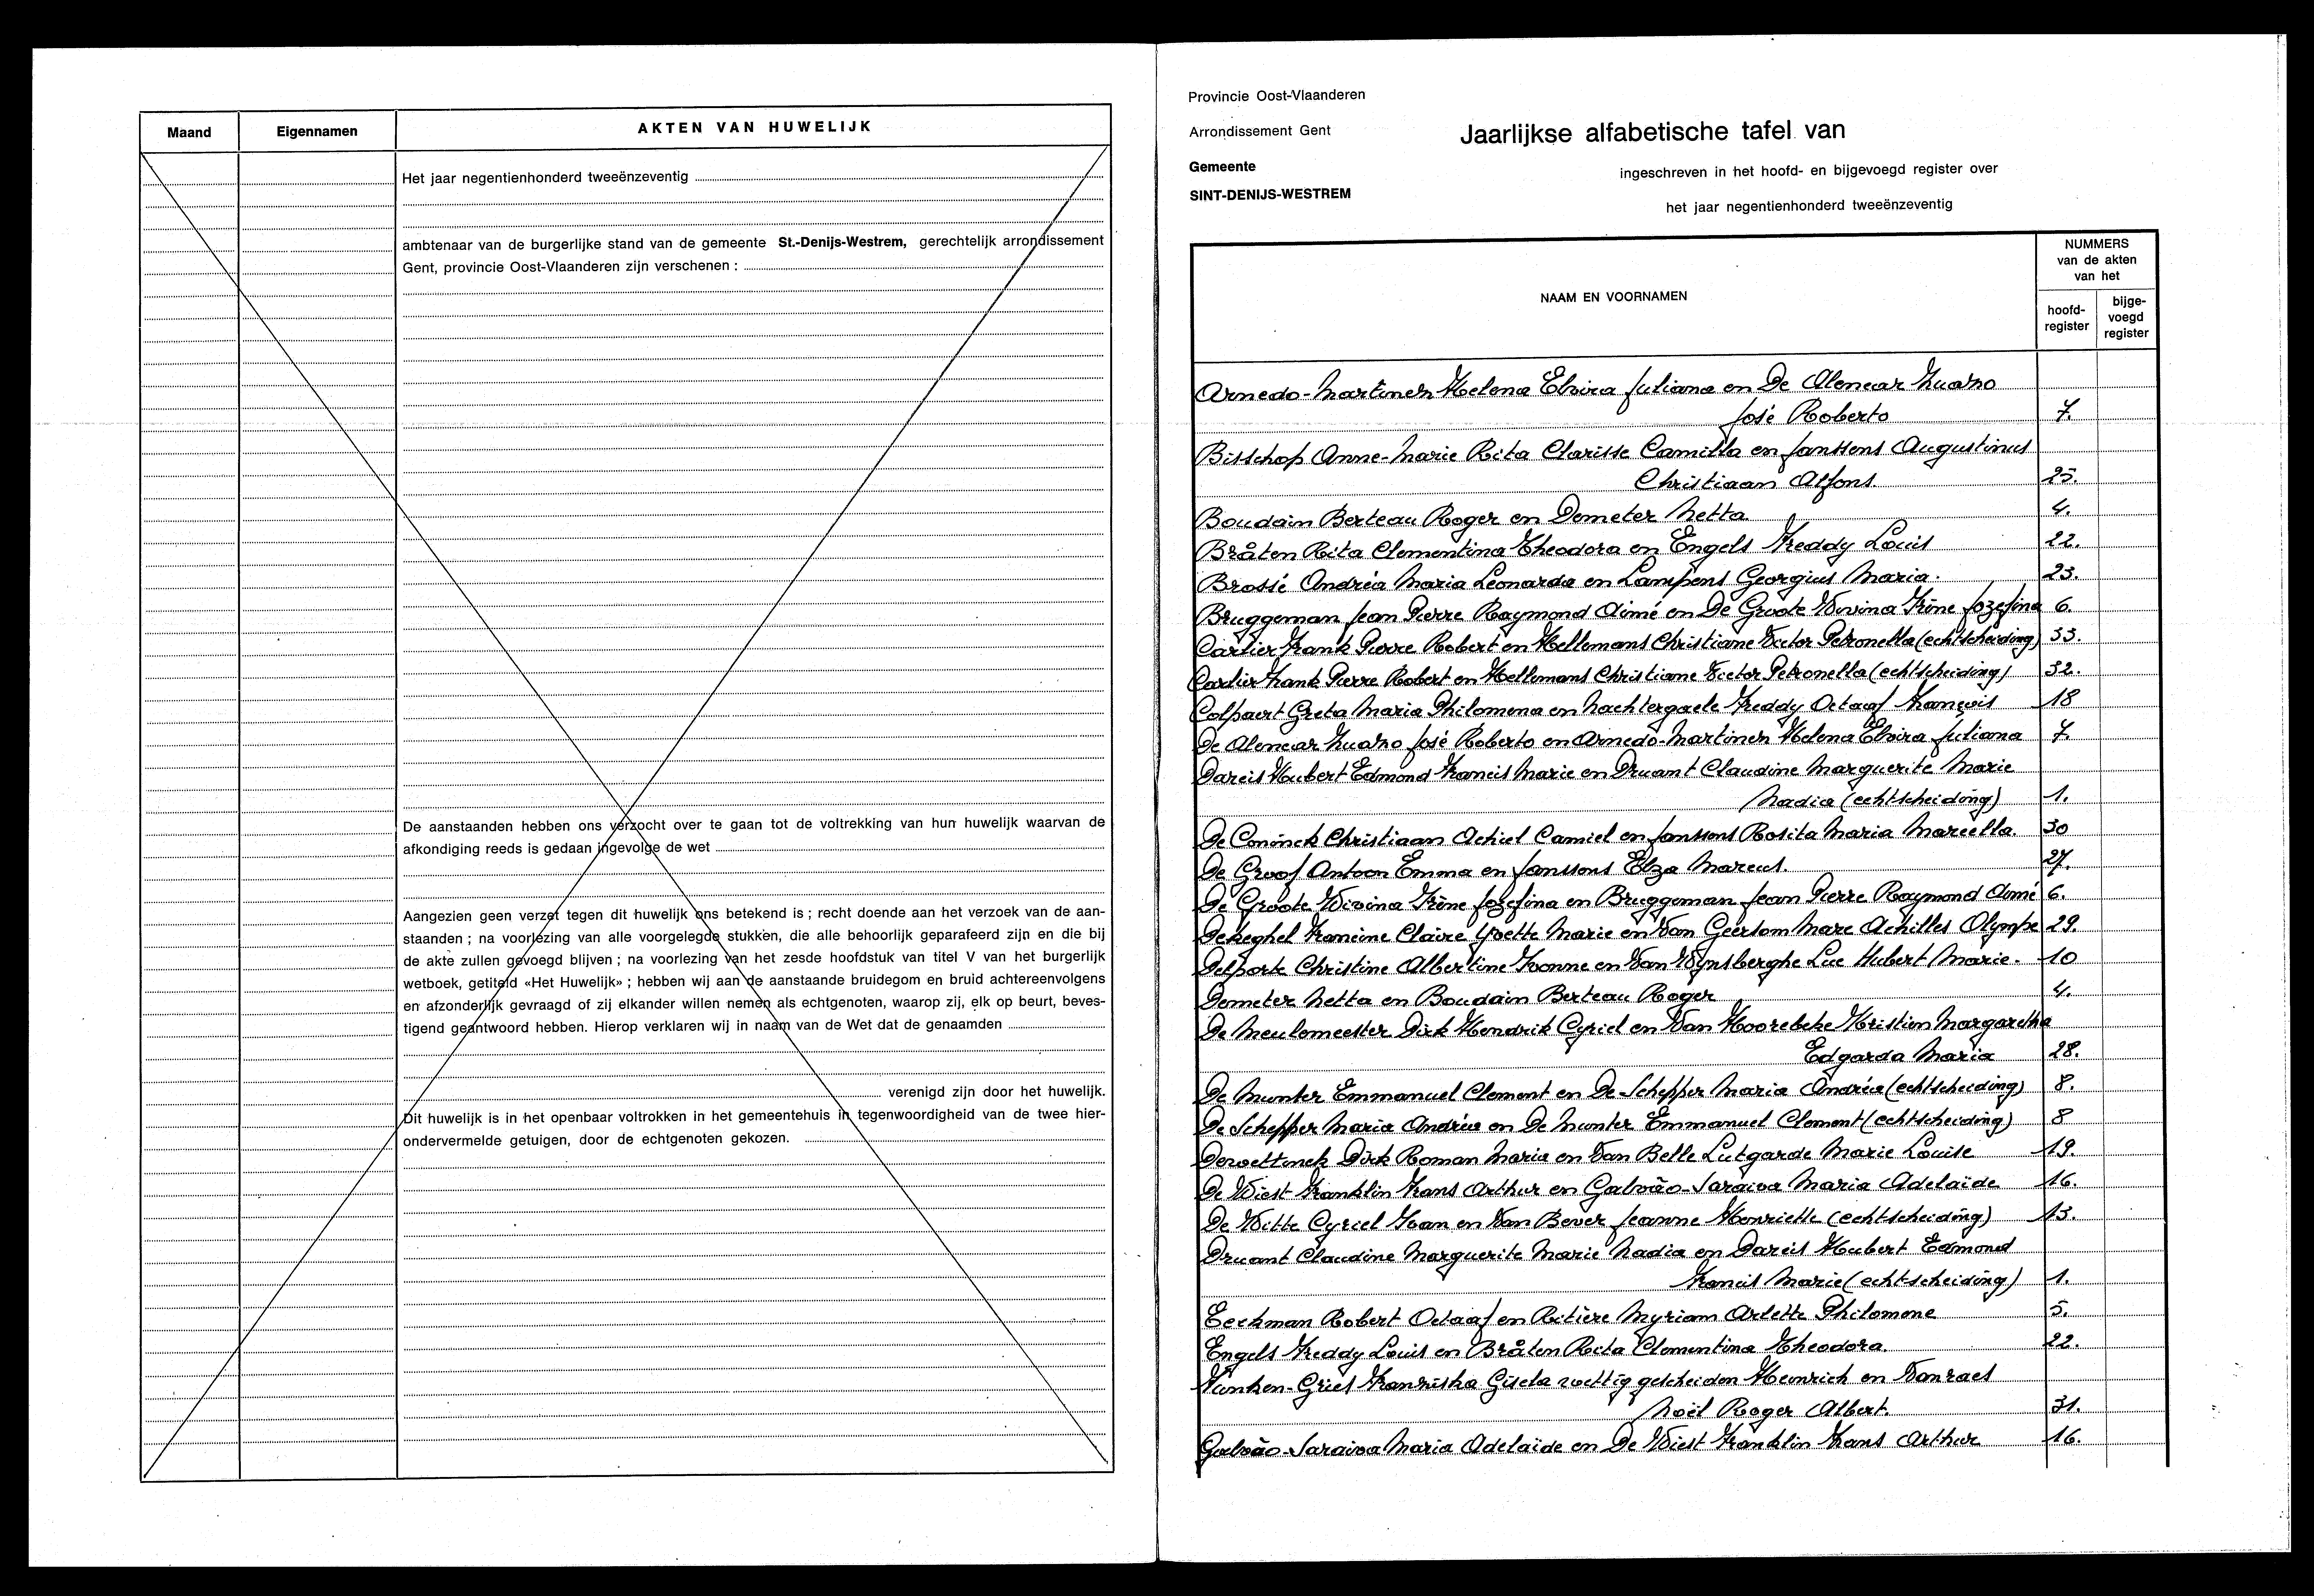 Maand
Eigennamen
AKTEN VAN HUWELIJK
Het jaar negentienhonderd tweeënzeventig
ambtenaar van de burgerlijke stand van de gemeente St.-Denijs-Westrem, gerechtelijk arrondissement
Gent, provincie Oost-Vlaanderen zijn verschenen :
De aanstaanden hebben ons verzocht over te gaan tot de voltrekking van hun huwelijk waarvan de
afkondiging reeds is gedaan ingevolge de wet
Aangezien geen verzet tegen dit huwelijk ons betekend is ; recht doende aan het verzoek van de aan-
staanden ; na voorlezing van alle voorgelegde stukken, die alle behoorlijk geparafeerd zijn en die bij
de akte zullen gevoegd blijven ; na voorlezing van het zesde hoofdstuk van titel V van het burgerlijk
wetboek, getiteld «Het Huwelijk» ; hebben wij aan de aanstaande bruidegom en bruid achtereenvolgens
en afzonderlijk gevraagd of zij elkander willen nemen als echtgenoten, waarop zij, elk op beurt, beves-
tigend geantwoord hebben. Hierop verklaren wij in naam van de Wet dat de genaamden
verenigd zijn door het huwelijk.
Dit huwelijk is in het openbaar voltrokken in het gemeentehuis in tegenwoordigheid van de twee hier-
ondervermelde getuigen, door de echtgenoten gekozen.
Provincie Oost-Vlaanderen
Arrondissement Gent
Gemeente
SINT-DENIJS-WESTREM
Jaarlijkse alfabetische tafel van
ingeschreven in het hoofd- en bijgevoegd register over
het jaar negentienhonderd tweeënzeventig
NAAM EN VOORNAMEN
NUMMERS
van de akten
van het
hoofd-
register
bijge-
voegd
register
Arnedo-Martinez Helena Elvira Juliana en De Alencar
José Roberto 7.
Bisschop Anne-Marie Rita Clarisse Camilla en Janssens Augustinus
Christiaan Alfons. 25.
Boudain Berteau Roger en Demeter Netta 4.
Bråten Rita Clementina Theodora en Engels Freddy Louis 22.
Brossé Andréa Maria Leonarda en Lampens Georgius Maria. 23.
Bruggeman Jean Pierre Raymond Aimé en De Groote Wivina Irène Jozefina 6.
Carlier Frank Pierre Robert en Hellemans Christiane Victor Petronella (echtscheiding) 33.
Carlier Frank Pierre Robert en Hellemans Christiane Victor Petronella (echtscheiding) 32.
Colpaert Greta Maria Philomena en Nachtergaele Freddy Octaaf François 18
De Alencar José Roberto en Arnedo-Martinez Helena Elvira Juliana 7.
Dareis Hubert Edmond Francis Marie en Druant Claudine Marguerite Marie
Nadia (echtscheiding) 1.
De Coninck Christiaan Achiel Camiel en Janssens Rosita Maria Marcella. 30
De Groof Antoon Emma en Janssens Elza Marcus. 27.
De Groote Wivina Irène Jozefina en Bruggeman Jean Pierre Raymond Aimé 6.
Dekeghel Francine Claire Yvette Marie en Van Geertom Marc Achilles Olympe 29.
Delporte Christine Albertine Yvonne en Van Wynsberghe Luc Hubert Marie. 10
Demeter Netta en Boudain Berteau Roger 4.
De Meulemeester Dirk Hendrik Cyriel en Van Hoorebeke Kristien Margaretha
Edgarda Maria 28.
De Munter Emmanuel Clement en De Schepper Maria Andréa (echtscheiding) 8.
De Schepper Maria Andréa en De Munter Emmanuel Clement (echtscheiding) 8
Dervettinck Dirk Roman Maria en Van Belle Lutgarde Marie Louise 19.
De Wiest Franklin Frans Arthur en Galvão-Saraiva Maria Adelaide 16.
De Witte Cyriel Ivan en Van Bever Jeanne Henriette (echtscheiding) 13.
Druant Claudine Marguerite Marie Nadia en Dareis Hubert Edmond
Francis Marie (echtscheiding) 1.
Eeckman Robert Octaaf en Ritière Myriam Arlette Philomene 5.
Engels Freddy Louis en Bråten Rita Clementina Theodora. 22.
Funken-Griet Franziska Gisela wettig gescheiden Heinrich en Vanraes
Noël Roger Albert. 31.
Galvão-Saraiva Maria Adelaide en De Wiest Franklin Frans Arthur 16.